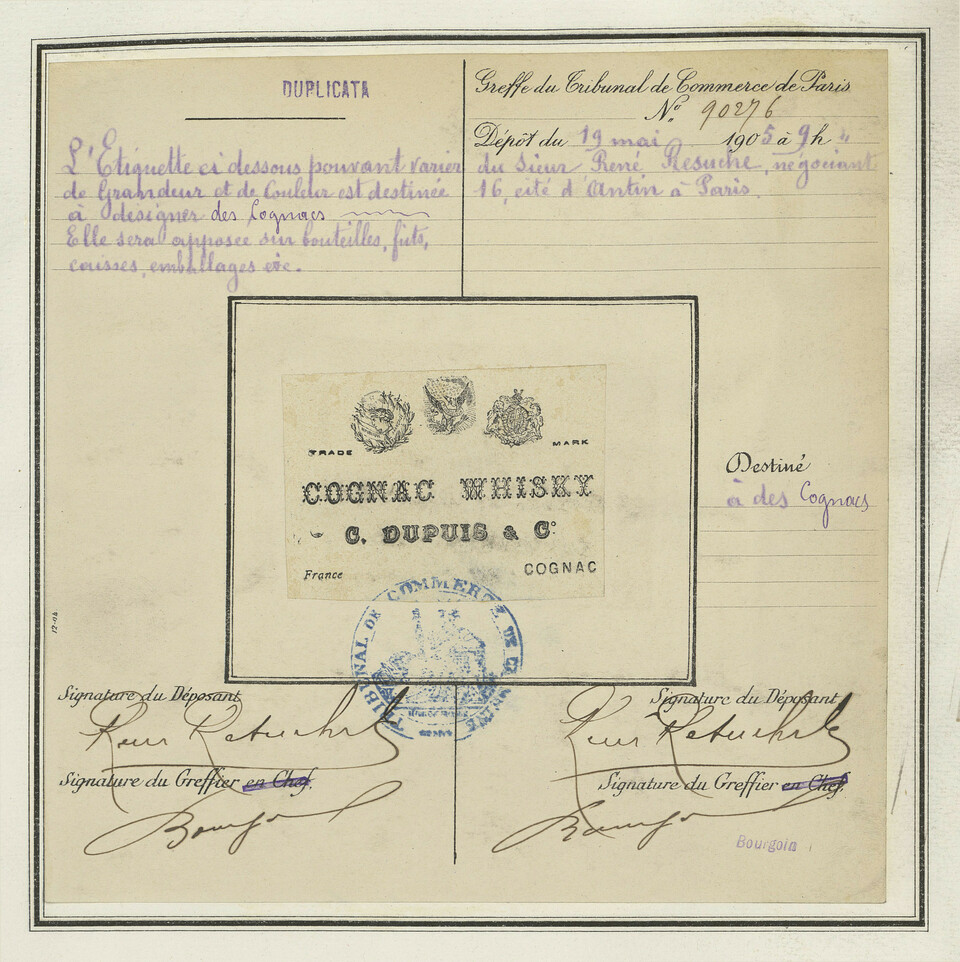 DUPLICATA
L'Etiquette ci dessous pouvant varier
de Grandeur et de Couleur est destinée
à désigner des Cognacs
Elle sera apposée sur bouteilles, futs,
caisses, emballages etc.
Greffe du Tribunal de Commerce de Paris
N° 90276
Dépôt du 19 mai 1905 à 9h "
du Sieur René Resuche, négociant
16, cité d'Antin à Paris.
TRADE MARK
COGNAC WHISKY
C. DUPUIS & Co
France COGNAC
Destiné
à des Cognacs
12-04
TRIBUNAL DE COMMERCE DE LA SEINE
Signature du Déposant
Signature du Greffier en Chef.
Signature du Déposant
Signature du Greffier en Chef.
Bourgoin